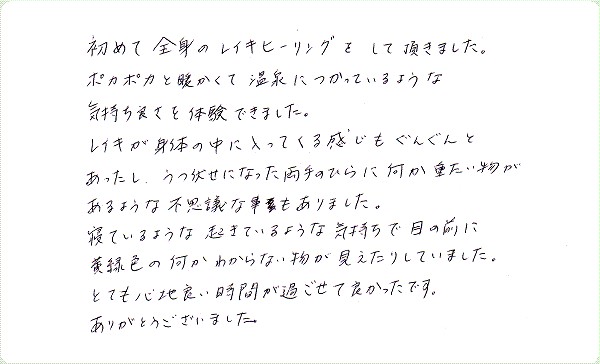 初めて全身のレイキヒーリングをして頂きました。
ポカポカと暖かくて温泉につかっているような
気持ち良さを体験できました。
レイキが身体の中に入ってくる感じもぐんぐんと
あったし、うつ伏せになった両手のひらに何か重たい物が
あるような不思議な事もありました。
寝ているような起きているような気持ちで目の前に
黄緑色の何かわからない物が見えたりしていました。
とても心地良い時間が過ごせて良かったです。
ありがとうございました。